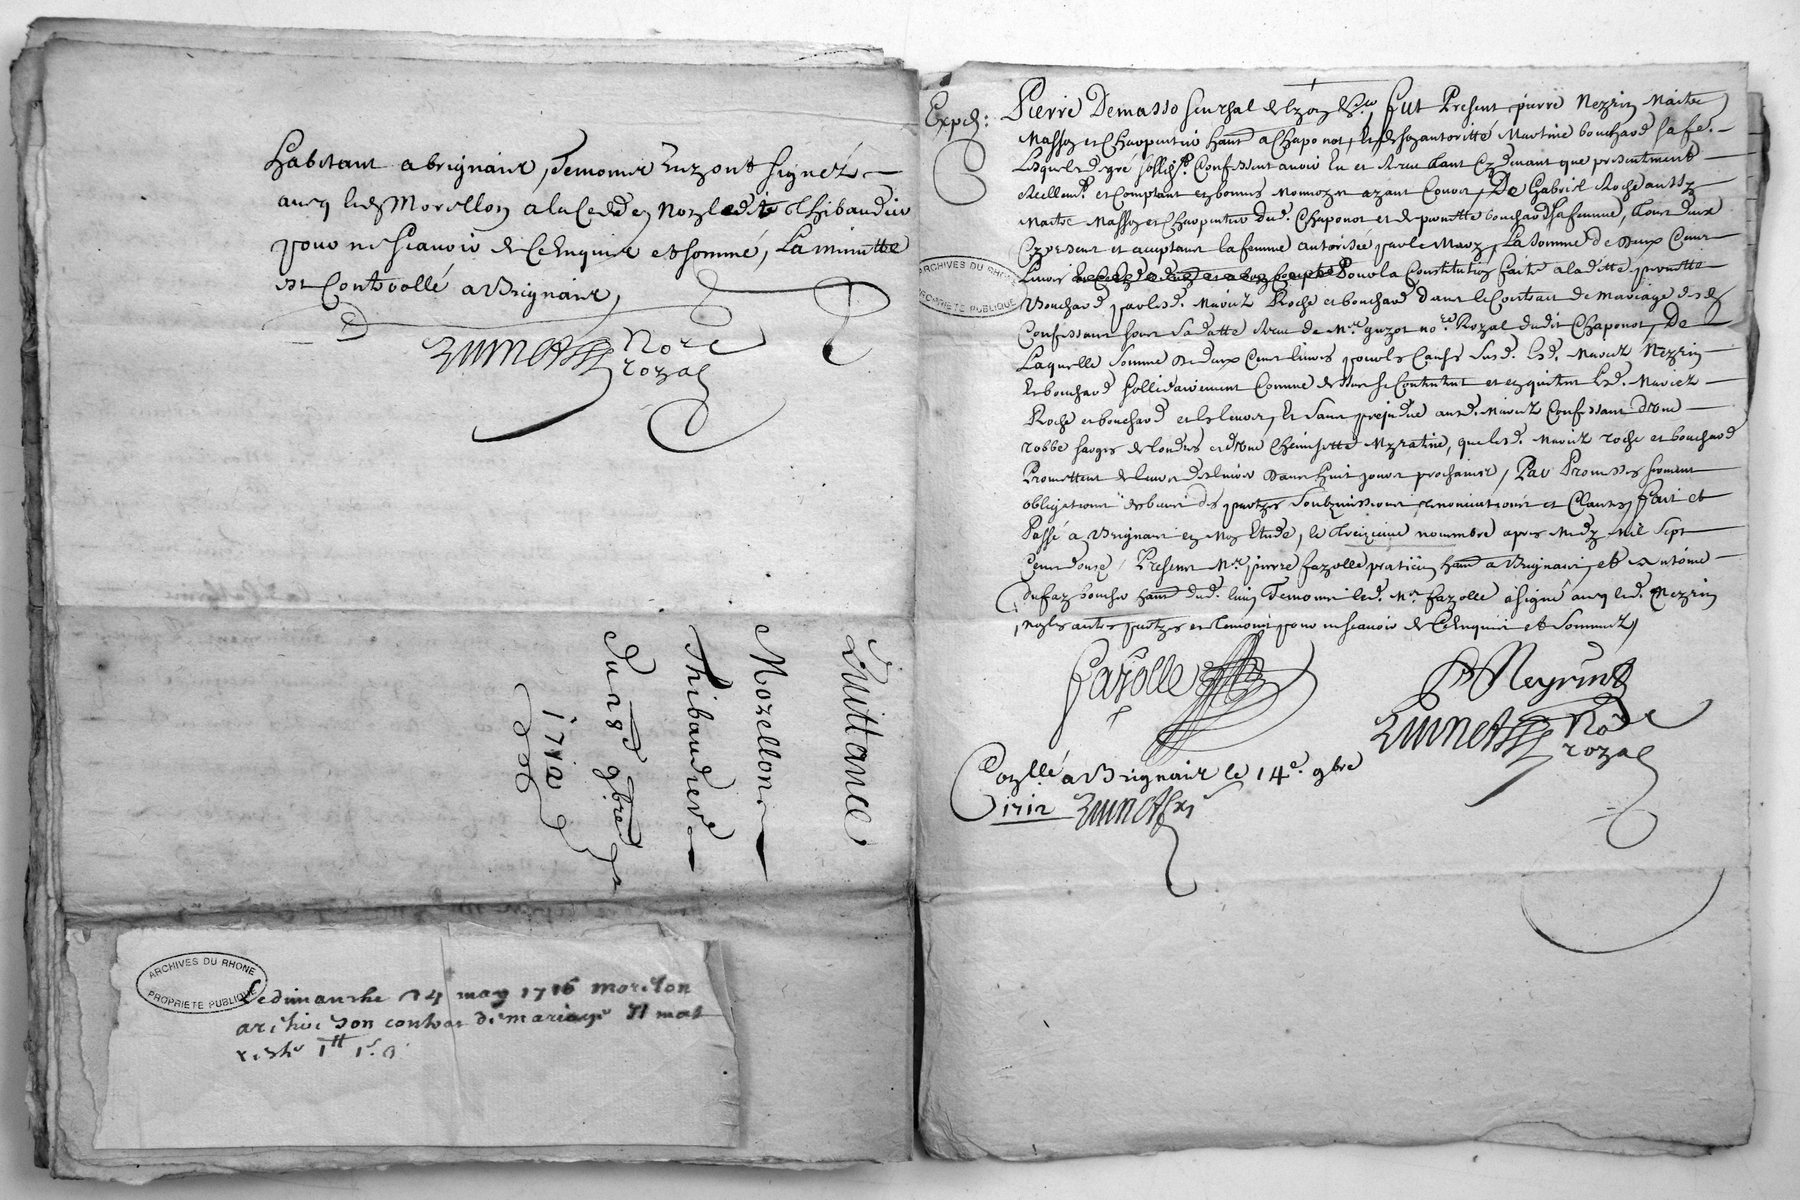 habitant a brignais, temoins Luy ont signez
avec led. Morellon a la Cedde non ledit Thibaudier
pour ne scavoir de ce enquis et sommé, La minutte
est Controllé a Brignais,
no.re
rozal
Quittance
Morellon
Thibaudier
du 8 9bre
1712
ARCHIVES DU RHONE
PROPRIETE PUBLIQUE
Le dimanche 24 may 1716 morelon
a son contrat de mariage Il mat
reste 1tt 1s
Exped:
Pierre Demasso senechal de Lyon fut Present pierre Neyrin Maitre
Masson et Charpentier habt a Chaponot, et de son autoritté Martine bouchard sa fe.
Lesquels de gré Confessent avoir Eu et Receu tant Cydevant que presentement
Reellemt. et Comptant en bonnes Monoyes ayant Cours, De Gabriel Roche aussy
Maitre Masson et Charpentier dud. Chaponot et de pernette bouchard sa femme, tous deux
Cy presents et aceptants la femme autorisée par le Mary, La somme de deux Cent
Livres pour la Constitution faite a la ditte pernette
Bouchard par lesd. Mariez Roche et bouchard dans le Contrat de Mariage desd.
Confessants sous sa datte Receu de Mre guyot no.re Rozal dudit Chaponot, De
Laquelle somme de deux Cent livres pour les Causes susd. lesd. Mariez Neyrin
et bouchard sollidairement Comme dessus se Contentent et en quittent lesd. Mariez
Roche et bouchard et les leurs, et sans prejudice ausd. Mariez Confessants d'une
robbe sarges de londres et d'une Chemisette Mzratine, que lesd. Mariez roche et bouchard
Promettent de leur deslivrer dans huit jours prochains, Par Promesses serment
obligations des biens des partyes soubzmissions renonciations et Clauses, fait et
Passé a Brignais en Mon Etude, le treizieme novembre apres Midy mil sept
Cent douze, Presents Mre pierre fazolle praticien habt a Brignais, et Antoine
dufaz boucher habt dud. lieu Temoins led. Mre fazolle a signé avec led. Neyrin
, non les autres partyes et temoins pour ne scavoir de ce enquis et sommez,
fazolle
Neyrin
no.re
rozal
Con.llé a Brignais le 14e. 9bre
1712
ARCHIVES DU RHONE
PROPRIETE PUBLIQUE